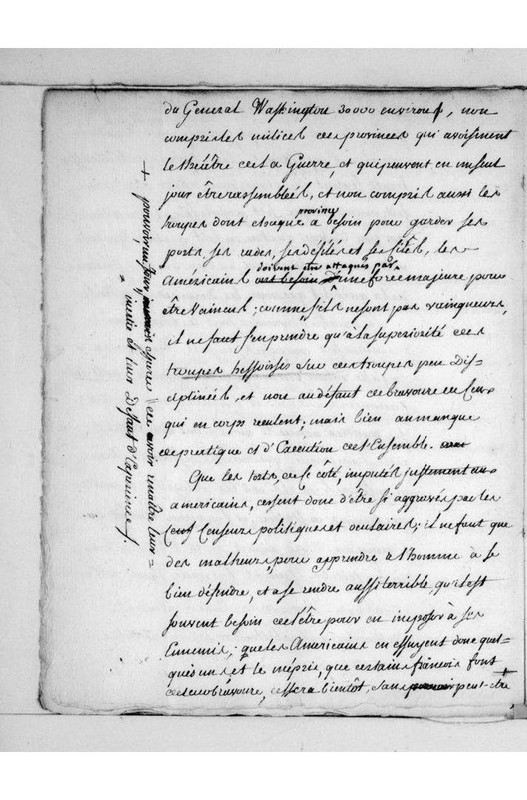 du General Washington 30000 environ, non
compris les milices des provinces qui avoisinent
le théétre de la Guerre, et qui peuvent en un seul
jour être rassemblées, et non compris aussi les
province
troupes dont chaque a besoin pour garder ses
ports, ses rades, ses défilés et ses îles, les
doivent être attaqués par
Américains ont besoin d'une force majeure pour
être vaincus; comme s'ils ne sont pas vainqueurs,
il ne faut s'en prendre qu'à la superiorité des
troupes hessoises sur des troupes peu dis-
ciplinées, et non au défaut de bravoure de ceux
qui en corps reculent; mais bien au manque
de pratique et d'Exécution de l'Ensemble.
Que les torts, de ce côté, imputés justement aux
americains, cessent donc d'être si aggravés par les
Censeurs politiques et oculaires; il ne faut que
des malheurs, pour apprendre à l'homme à se
bien défendre, et a se rendre aussi terrible, qu'il est
souvent besoin de l'être pour en imposer à ses
Ennemis; que les Americains en essuyent donc quel-
ques uns, et le mépris, que certains françois font
de leur bravoure, cessera bientôt, sans peut-être
+ pouvoir un jour
de avoir connître leur
inertie et leur Défaut d'Expérience